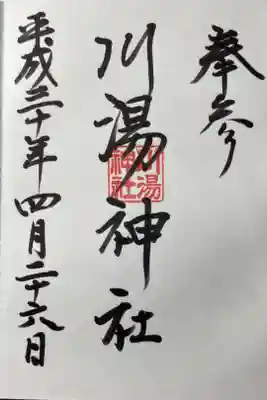 奉参
川湯神社
川湯神社
平成三十年四月二十六日